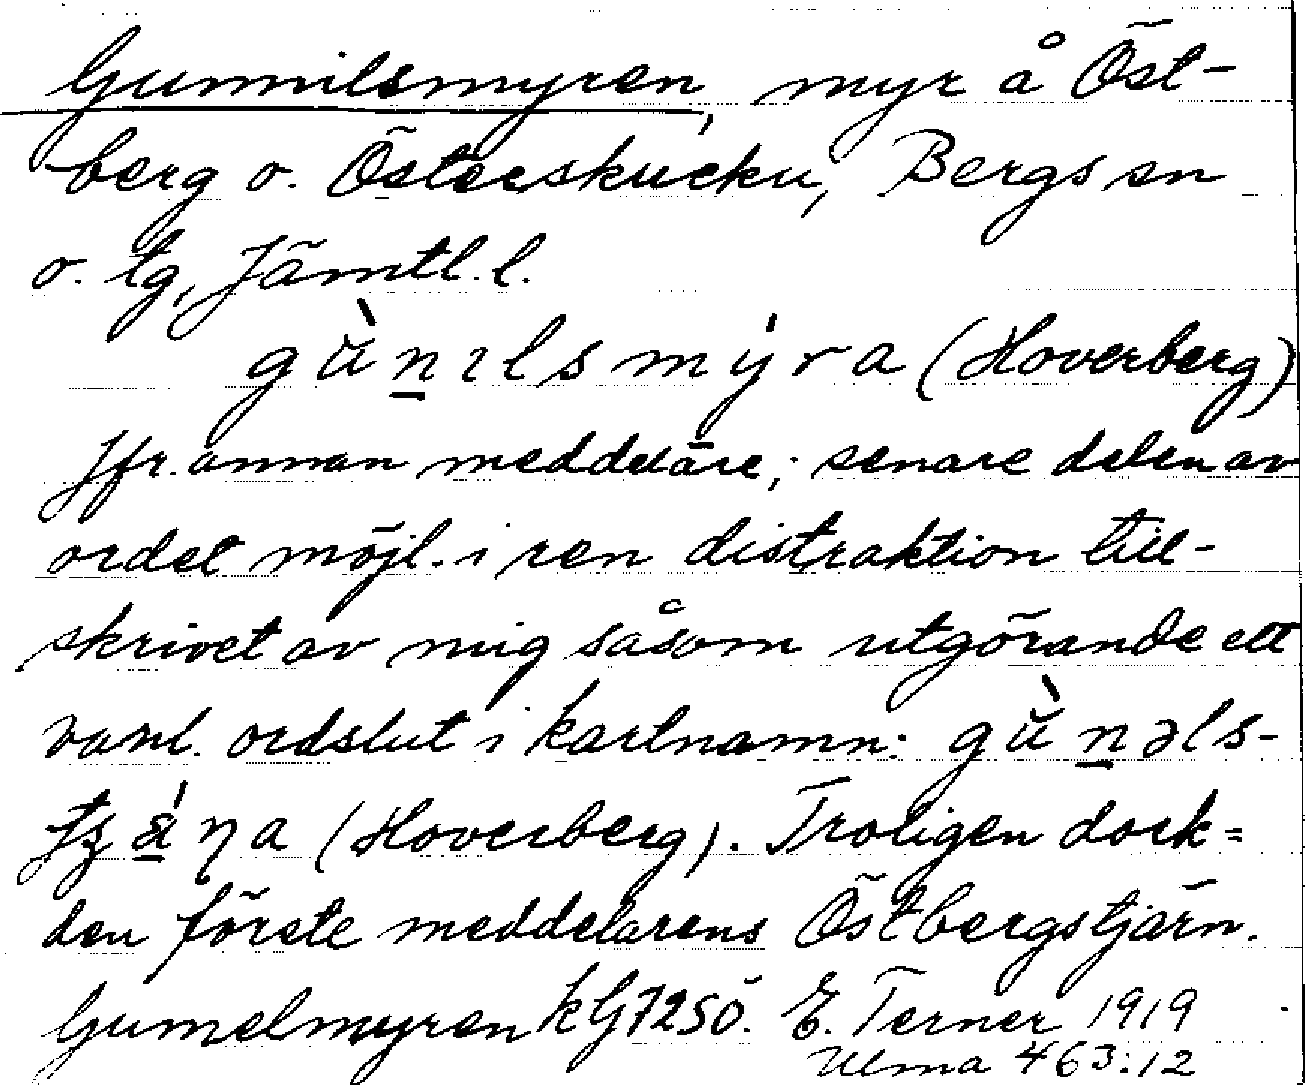 Gunnilsmyren, myr å Öst-
berg o. Österskucku, Bergs sn
o. tg, Jämtl. l.
gùn̲ɪlsmýra (Hoverberg)
Jfr. annan meddelare; senare delen av
ordet möjl. i ren distraktion till-
skrivet av mig såsom utgörande ett
vanl. ordslut i kartnamn: gùn̲əls-
(Hoverberg). Troligen dock =
den förste meddelarens Östbergstjärn.
Gumelmyren k G 72 SÖ. E. Terner 1919
Ulma 463:12